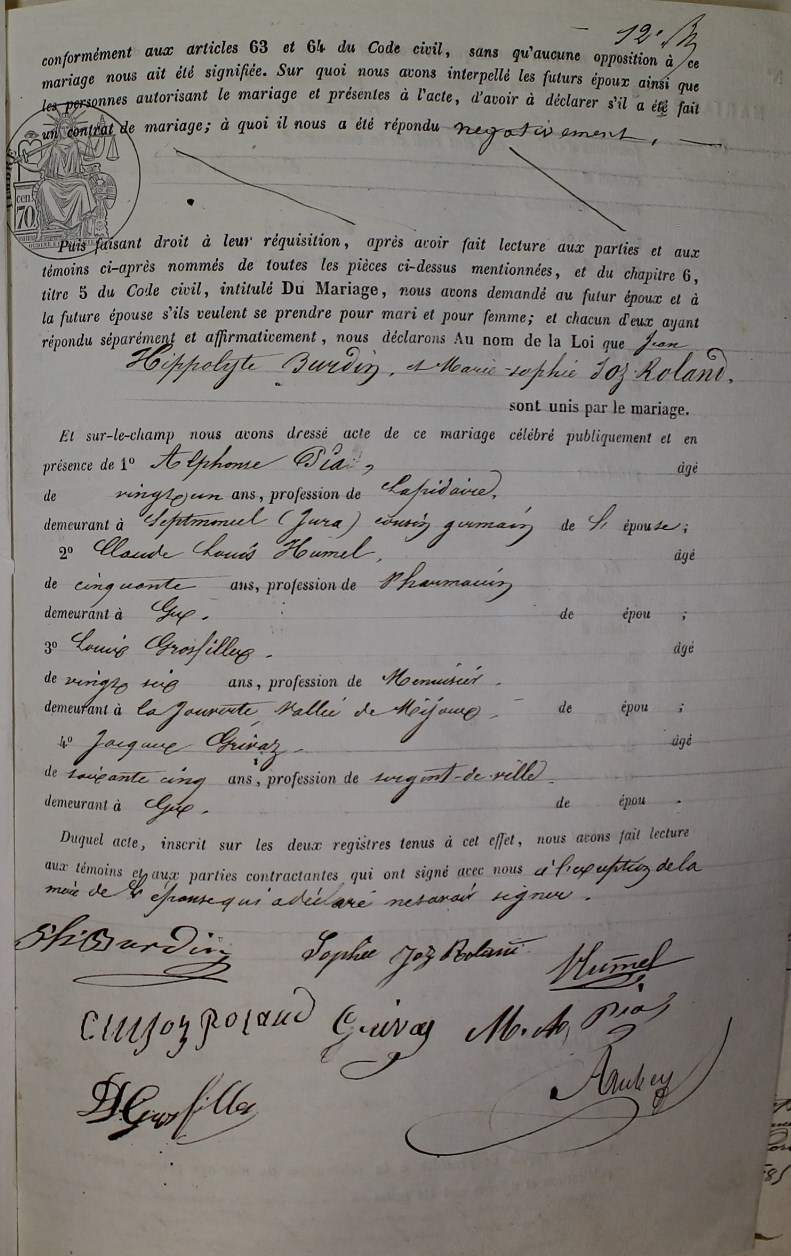 12e
conformément aux articles 63 et 64 du Code civil, sans qu'aucune opposition à ce
mariage nous ait été signifiée. Sur quoi nous avons interpellé les futurs époux ainsi que
les personnes autorisant le mariage et présentes à l'acte, d'avoir à déclarer s'il a été fait
un contrat de mariage; à quoi il nous a été répondu negativement.
cen.
70
Puis faisant droit à leur réquisition, après avoir fait lecture aux parties et aux
témoins ci-après nommés de toutes les pièces ci-dessus mentionnées, et du chapitre 6,
titre 5 du Code civil, intitulé Du Mariage, nous avons demandé au futur époux et à
la future épouse s'ils veulent se prendre pour mari et pour femme; et chacun d'eux ayant
répondu séparément et affirmativement, nous déclarons Au nom de la Loi que Jean
Hippolyte Burdin, et Marie-Sophie Joz-Roland,
sont unis par le mariage.
Et sur-le-champ nous avons dressé acte de ce mariage célébré publiquement et en
présence de 1o Alphonse âgé
de vingt un ans, profession de Lapidaire,
demeurant à Septmoncel (Jura) cousin germain de l' épouse;
2o Claude Louis Humel, âgé
de cinquante ans, profession de Pharmacien
demeurant à Gex. de épou ;
3o Louis Grosfillex. âgé
de vingt six ans, profession de Menuisier.
demeurant à la vallée de Mijoux. de épou ;
4o Jacques Grivaz. âgé
de soixante cinq ans, profession de sergent-de-ville.
demeurant à Gex. de épou .
Duquel acte, inscrit sur les deux registres tenus à cet effet, nous avons fait lecture
aux témoins et aux parties contractantes qui ont signé avec nous à l'exception de la
mère de l'épouse qui a déclaré ne savoir signer.
Burdin Sophie Joz Roland Humel
Joz Roland Grivaz
Grosfillex